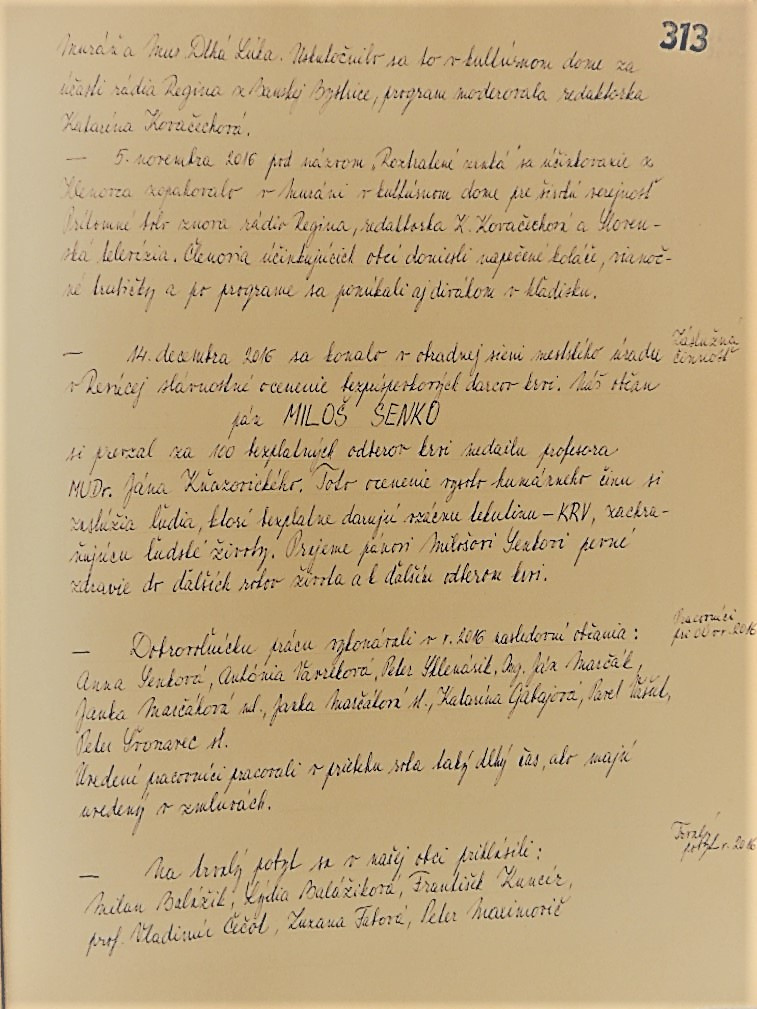 313
Muráň a Mur. Dlhá Lúka. Uskutočnilo sa to v kultúrnom dome za
účasti rádia Regina z Banskej Bystrice, program moderovala redaktorka
Katarína Kovačechová.
— 5. novembra 2016 pod názvom „Roztratené zrnká“ sa účinkovanie z
Klenovca zopakovalo v Muráni v kultúrnom dome pre širokú verejnosť
Prítomné bolo znova rádio Regina, redaktorka K. Kovačechová a Sloven-
ská televízia. Členovia účinkujúcich obcí doniesli napečené koláče, vianoč-
né trubičky a po programe sa ponúkali aj divákom v hľadisku.
— 14. decembra 2016 sa konalo v obradnej sieni mestského úradu
Záslužná
činnosť
v Revúcej slávnostné ocenenie bezpríspevkových darcov krvi. Náš občan
pán MILOŠ SENKO
si prevzal za 100 bezplatných odberov krvi medailu profesora
MUDr. Jána Kňazovického. Toto ocenenie vysoko humánneho činu si
zaslúžia ľudia, ktorí bezplatne darujú vzácnu tekutinu – KRV, zachra-
ňujúcu ľudské životy. Prajeme pánovi Milošovi Senkovi pevné
zdravie do ďalších rokov života a k ďalším odberom krvi.
Pracovníci
pri OÚ v r. 2016
— Dobrovoľnícku prácu vykonávali v r. 2016 nasledovní občania:
Anna Senková, Antónia Vavreková, Peter Sklenásik, Ing. Ján Marčák,
Janka Marčáková ml., Janka Marčáková st., Katarína Gabajová, Pavel
Peter Švonavec st.
Uvedení pracovníci pracovali v priebehu roka taký dlhý čas, ako majú
uvedený v zmluvách.
Trvalý
pobyt r. 2016
— Na trvalý pobyt sa v našej obci prihlásili:
Milan Balážik, Lýdia Balážiková, František Kuncér,
prof. Vladimír Čečot, Zuzana Fabová, Peter Maximovič